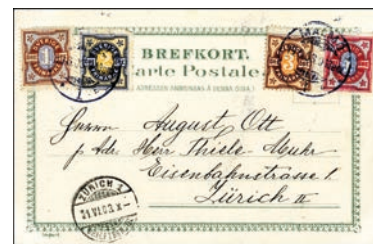 BREFKORT.
Carte Postale.
(ADRESSEN ANBRINGAS Å DENNA SIDA.)
Herrn August Ott
p. Adr. Herr Thiele Muhr
Eisenbahnstrasse 1
Zürich II
ZÜRICH 1
21.VI.03.X-1